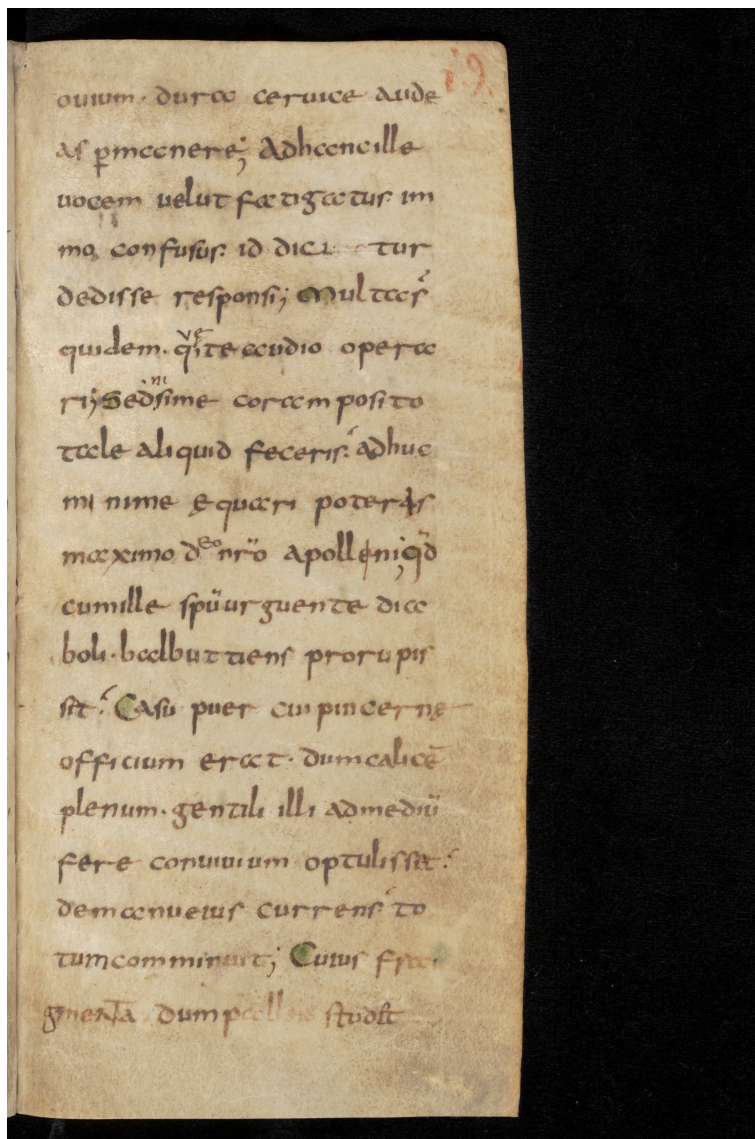 19.
ouium· dura ceruice aude
as p̄manere; Adhanc ille
uocem uelut fatigatus im
mo confusus· id dicitur
dedisse responsi; Multas
quidem· q̄ de te audio opera
ri; Sed nisi me coram posito
tale aliquid feceris· adhuc
minime ęquari poteras
maximo deo nr̄o apolleni; qd̄
cum ille spū urguente dia
boli· balbuttiens prorupis
sit· Casu puer cui pincernę
officium erat· dum calicē
plenum· gentili illi ad mediū
fere conuiuium optulisset·
de manu eius currens· to
tum comminuit; Cuius fra
gmenta dum pallens studēt